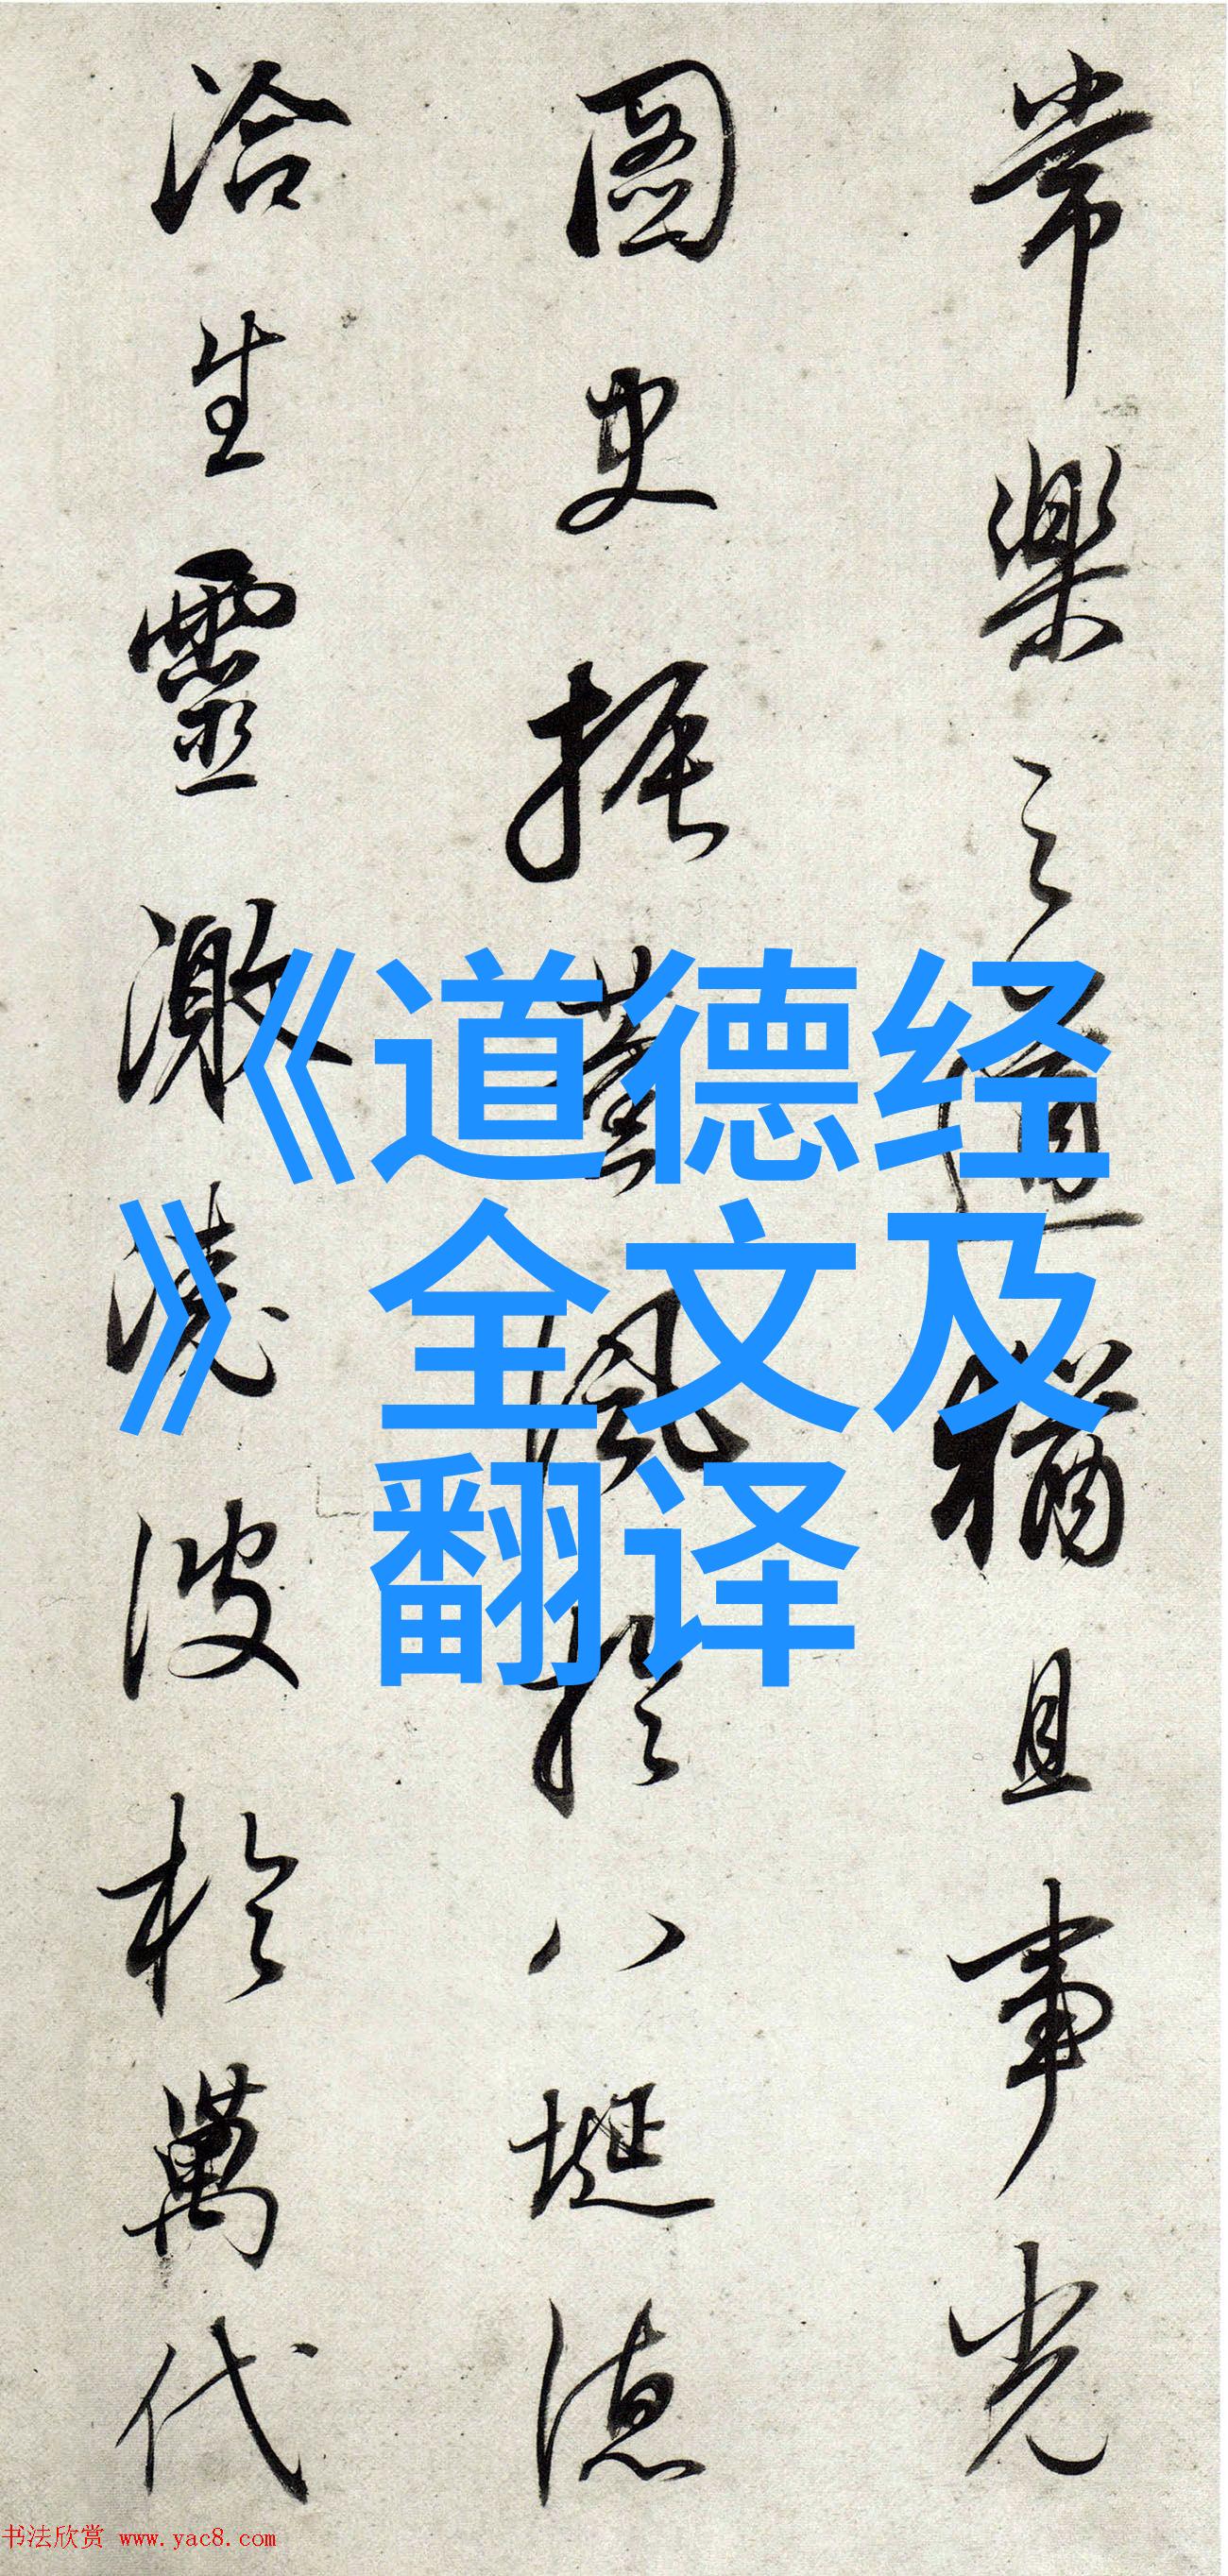 常樂之道猶且事光
圖史振薰風於八埏德
洽生靈激波於萬代
《道德经
》全文及
翻译
书法欣赏 www.yac8.com